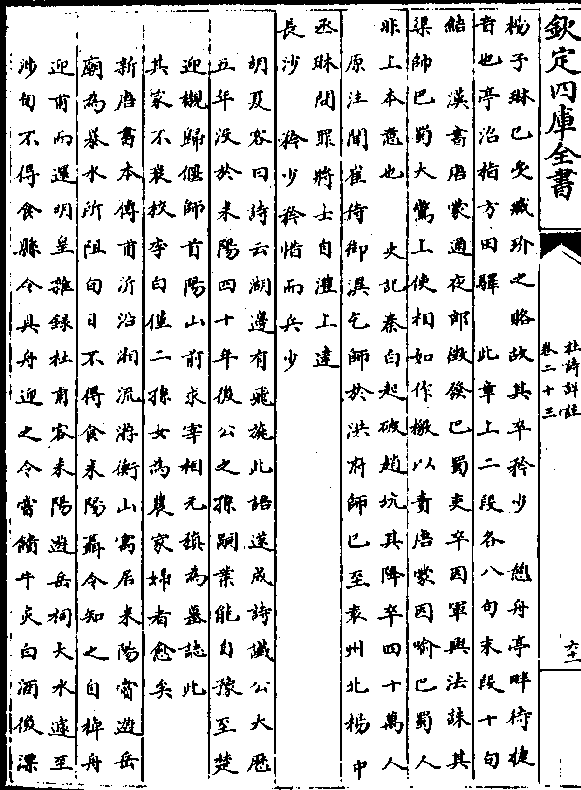 欽定四庫全書
杜詩詳註
卷二十三
六十一
楊子琳已受臧玠之賂故其卒矜少　憩舟亭畔待捷
音也亭沿指方田驛　此章上二段各八句末段十句
結　漢書唐蒙通夜郎徵發巴蜀吏卒因軍興法誅其
渠帥巴蜀大驚上使相如作檄以責唐蒙因喻巴蜀人
非上本意也　史記秦白起破趙坑其降卒四十萬人
原注聞崔侍御潩乞師於洪府師已至袁州北楊中
丞琳問罪將士自澧上達
長沙　矜少矜惜而兵少
胡夏客曰詩云湖邊有飛旐此語遂成詩讖公大厯
五年没於耒陽四十年後公之孫嗣業能自豫至楚
迎櫬歸偃師首陽山前求宰相元稹為墓誌此
其家不衰較李白僅二孫女為農家婦者愈矣
新唐書本傳甫沂沿湘流游衡山寓居耒陽嘗遊岳
廟為暴水所阻旬日不得食耒陽聶令知之自棹舟
迎甫而還明皇雜録杜甫客耒陽遊岳祠大水遽至
涉旬不得食縣令具舟迎之令嘗饋牛炙白酒後漂